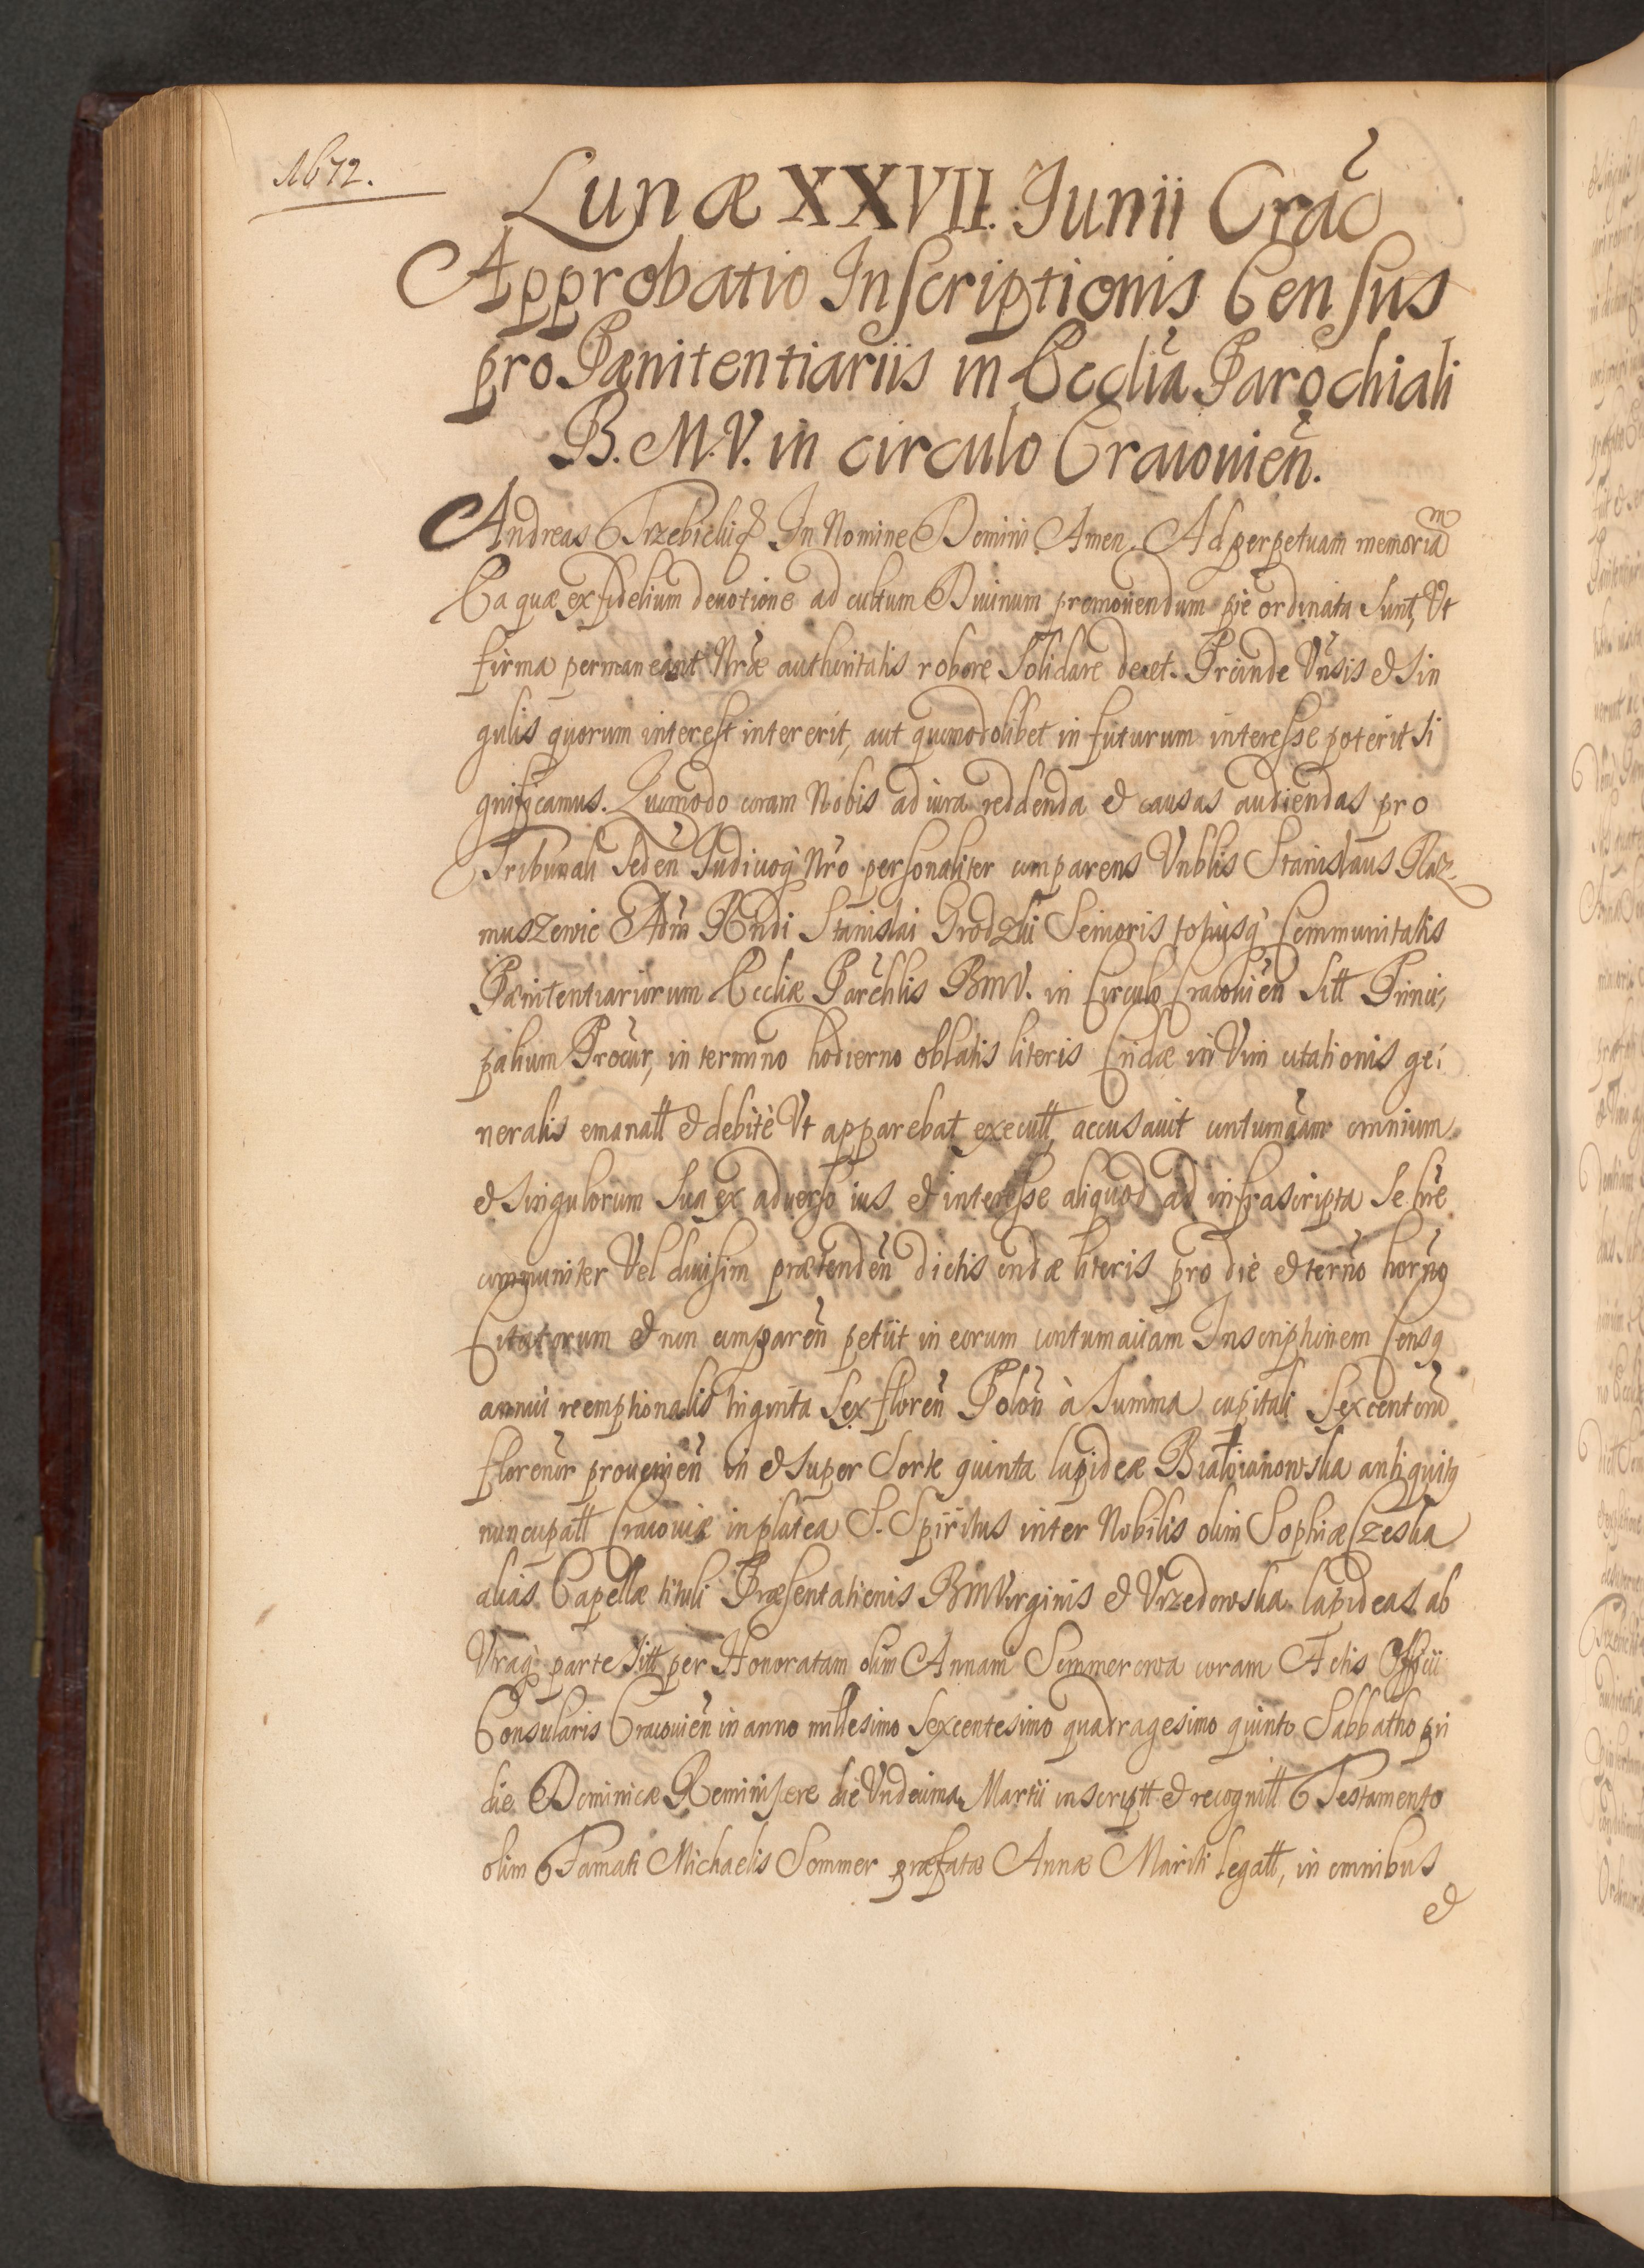 1672.
Lunæ XXVII. Junii Crac̃
Approbatio Inscriptionis Census
pro Pænitentiariis in Ecclia Parochiali
B. M. V. in circulo Cracouien̄.
Andreas Trzebicki &c In Nomine Domini Amen. Ad perpetuam memoriam
Ea quæ ex fidelium deuotione ad cultum Diuinum promouendum pie ordinata sunt, Vt
firma permaneant Nr̃æ authoritatis robore solidare decet. Proinde Vn̄sis & sin
gulis quorum interest intererit, aut quomodolibet in futurum interesse poterit si
gnificamus. Quomodo coram Nobis ad iura reddenda & causas audiendas pro
Tribunali Seden̄ Judicioq̀ Nr̃o personaliter comparens Vnblis Stanislaus Raz
muszewic Adm̃ Rn̄di Stanislai Grodzki Senioris totiusq̀ Communitatis
Pænitentiariorum Eccliæ Parchlis BMV. in Circulo Cracouien̄ sitt Princi,
palium Procur, in termino hodierno oblatis literis Cn̄dæ in Vim citationis ge:
neralis emanatt & debitè Vt apparebat executt, accusauit contumaciam omnium
& singulorum sua ex aduerso ius & interesse aliquod ad infrascripta se hr̃e
communiter Vel diuisim prætenden̄ dictis cn̄dæ literis pro die & ter̄no hor̄no
Citatorum & non comparen̄ petiit in eorum contumaciam Inscriptionem Censq
annui reemptionalis triginta sex floren̄ Polon̄ à summa capitali sexcentorũ
florenor prouenien̄ in & super Sorte quinta lapideæ Białoianowska antiquitq
nuncupatt Cracouiæ in platea S. Spiritus inter Nobilis olim Sophiæ Czeska
alias Capellæ tituli Præsentationis BMVirginis & Vrzedowska lapideas ab
Vtraq̀ parte sitt per Honoratam olim Annam Sommerowa coram Actis Officii
Consularis Cracouien̄ in anno millesimo sexcentesimo quadragesimo quinto Sabbatho pri
die Dominicæ Reminiscere die Vndecima Martii inscriptt & recognitt Testamento
olim Famati Michaelis Sommer præfatæ Annæ Mariti legatt, in omnibus
&